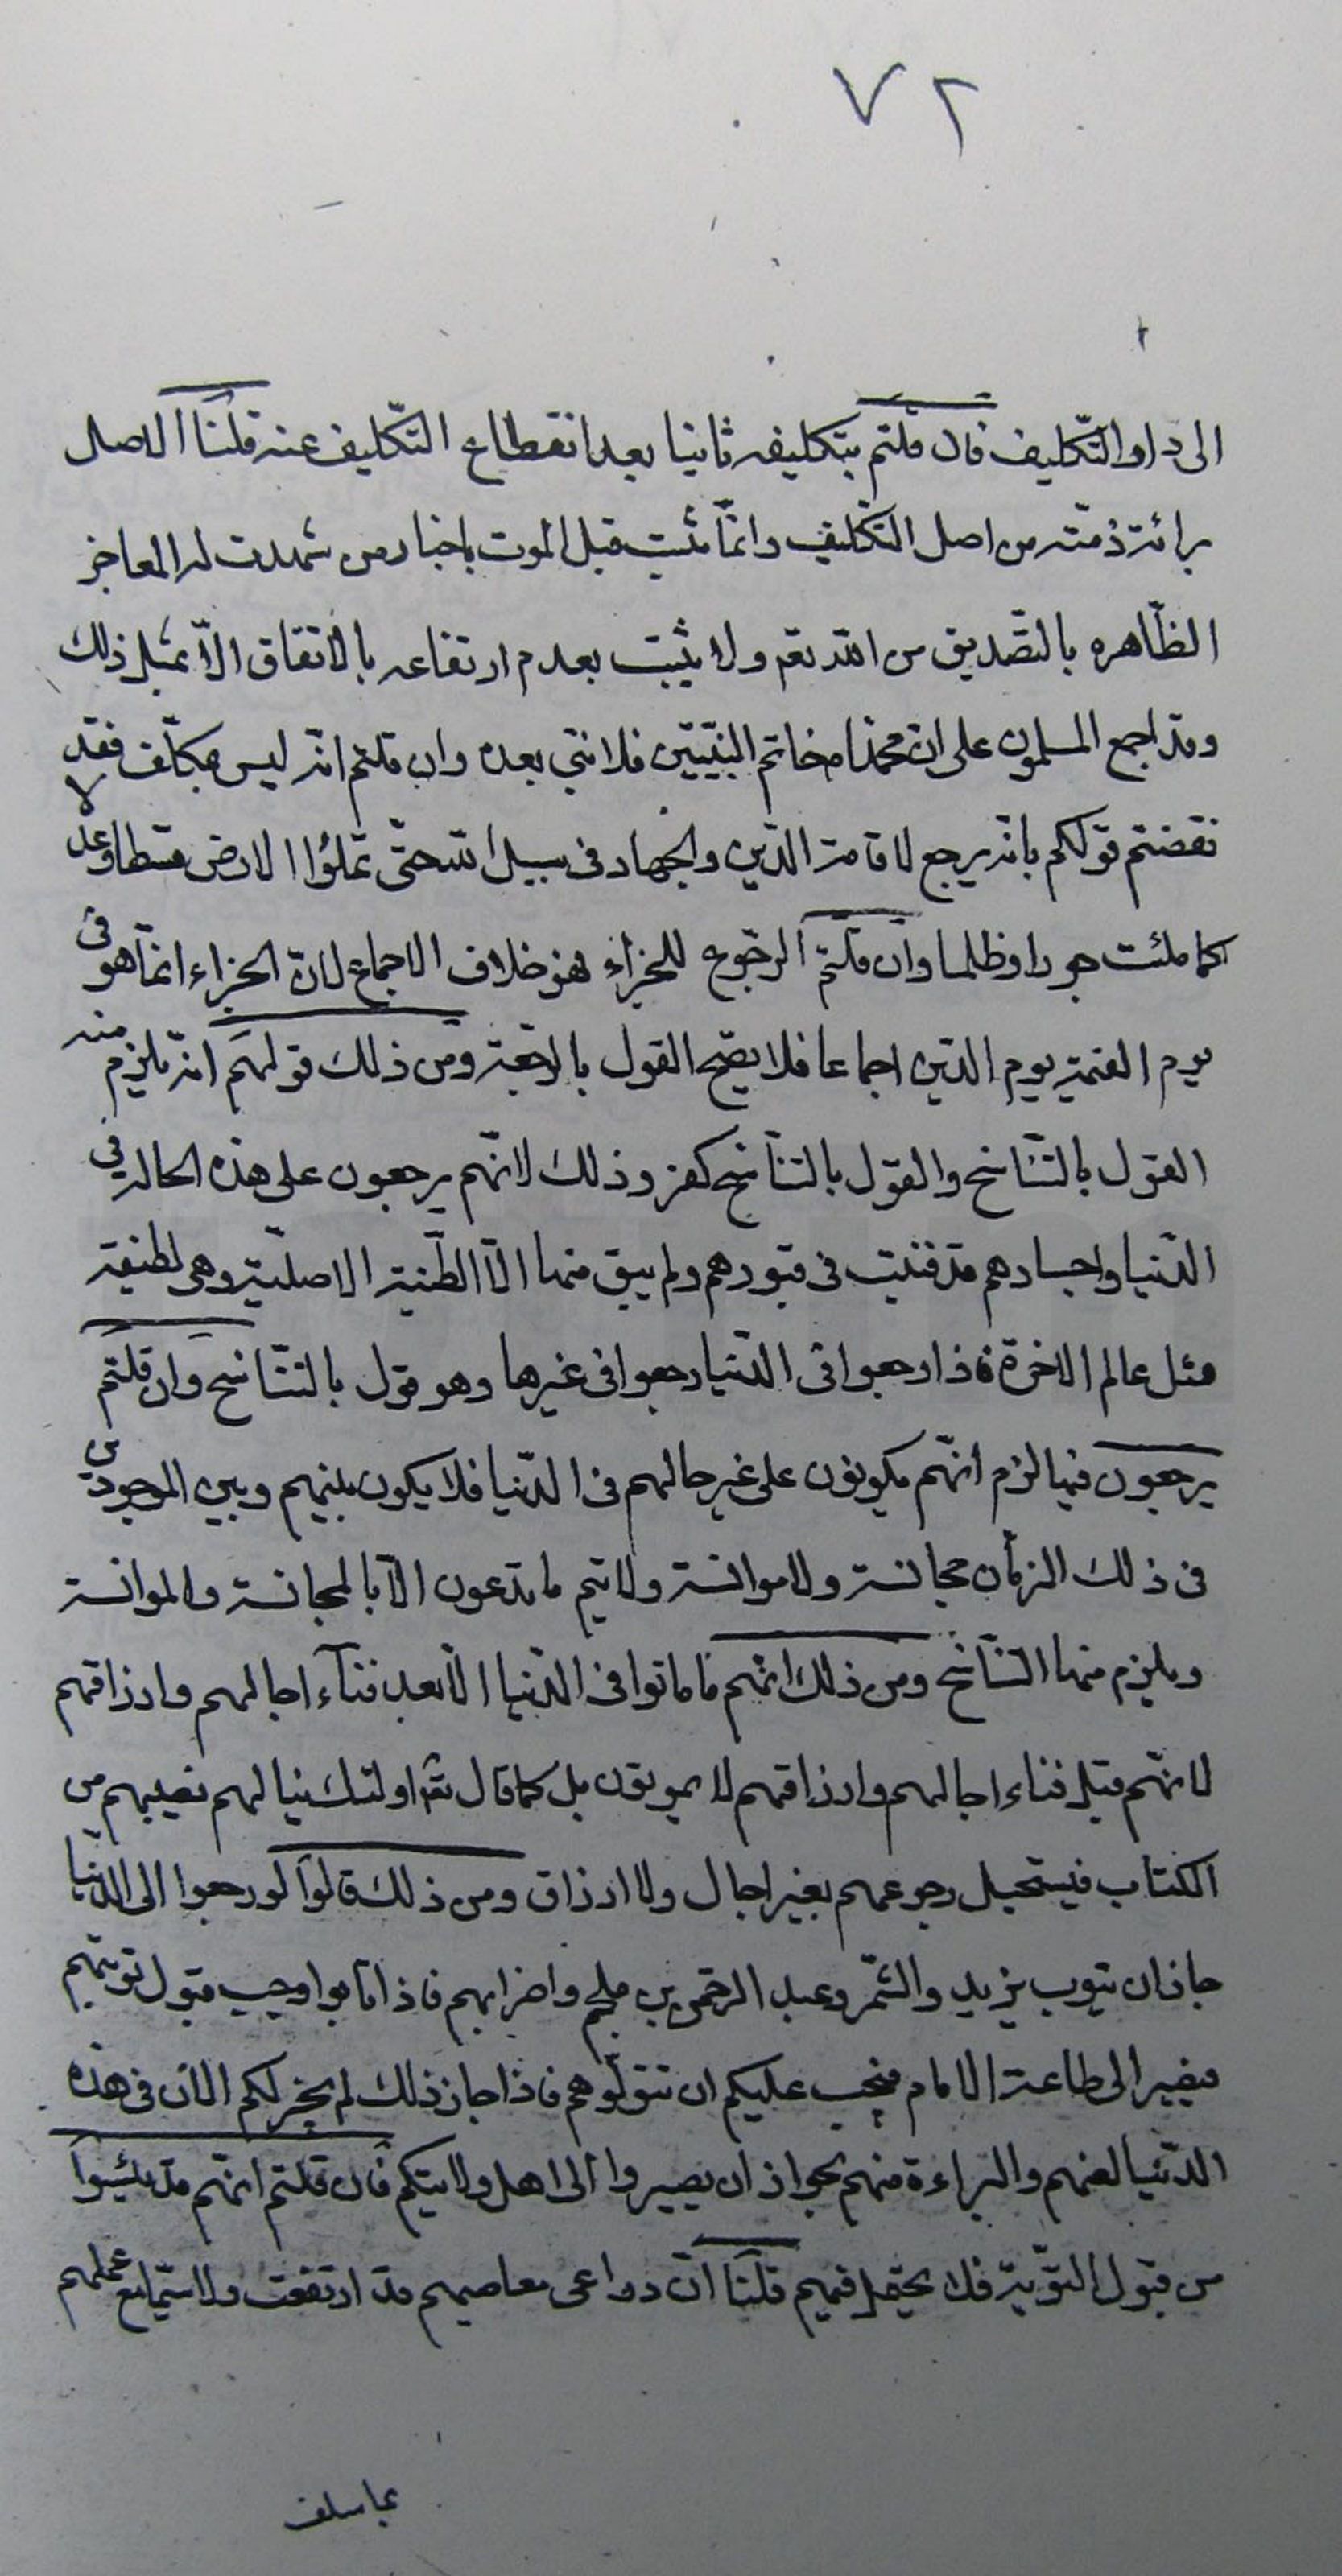 ٧٢
الى دار التّكليف فان قلتم بتكليفه ثانيا بعد انقطاع التّكليف عنه قلنا الاصل
برائة ذمّته من اصل التّكليف وانّما ثبت قبل الموت باخبار من شهدت له المعاجز
الظّاهره بالتّصديق من الله تعم ولا يثبت بعدم ارتفاعه بالاتفاق الّا بمثل ذلك
وقد اجمع المسلمون على ان محمّدا ص خاتم النبيّين فلا نبي بعده وان قلتم انّه ليس بمكلّف فقد
نقضتم قولكم بانّه يرجع لاقامة الدّين والجهاد في سبيل الله حتّى تملؤا الارض قسطا وعدلا
كما ملئت جورا وظلما وان قلتم الرّجوع للجزاء فهو خلاف الاجماع لانّ الجزاء انّما هو في
يوم القيمة يوم الدّين اجماعا فلا يصّح القول بالرّجعة ومن ذلك قولهم انّه يلزم منه
القول بالتّناسخ والقول بالتناسخ كفر وذلك لانّهم يرجعون على هذه الحالة في
الدّنيا واجسادهم قد فنيت في قبورهم ولم يبق منها الّا الطّينة الاصليّة وهي لطيفة
مثل عالم الاخرة فاذا رجعوا فى الدّنيا رجعوا فى غيرها وهو قول بالتّناسخ وان قلتم
يرجعون فيها لزم انّهم يكونون على غير حالهم فى الدّنيا فلا يكون بينهم وبين الموجودين
فى ذلك الزمان مجانسة ولا موانسة ولا يتم ما تدعون الّا بالمجانسة والموانسة
ويلزم منها التّناسخ ومن ذلك انّهم ما ماتوا فى الدّنيا الّا بعد فناء اجالهم وارزاقهم
لانّهم قبل فناء اجالهم وارزاقهم لا يموتون بل كما قال تعم اولئك ينالهم نصيبهم من
الكتاب فيستحيل رجوعهم بغير اجال ولا ارزاق ومن ذلك قالوا لو رجعوا الى الدّنيا
جاز ان يتوب يزيد والشّمر وعبد الرّحمن بن ملجم واضرابهم فاذا تابوا وجب قبول توبتهم
فيصير الى طاعة الامام فيجب عليكم ان تتولّوهم فاذا جاز ذلك لم يجز لكم الان فى هذه
الدّنيا لعنهم والبراءة منهم لجواز ان يصيروا الى اهل ولايتكم فان قلتم انّهم قد يئسوا
من قبول التّوبة فلا يحصل فيهم قلنا انّ دواعى معاصيهم قد ارتفعت ولا سيّما مع علمهم
بما سلف